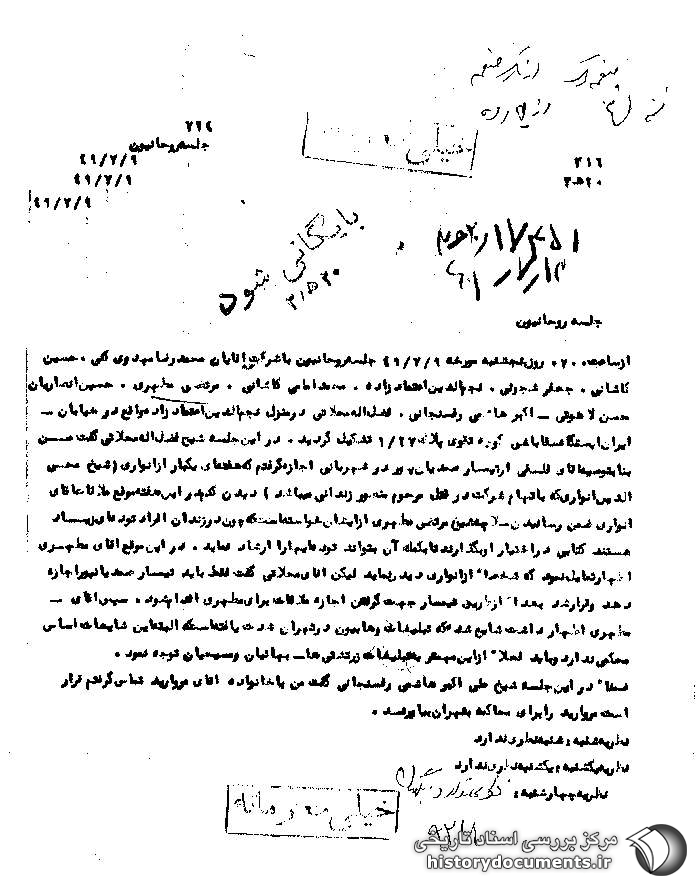 ۳۱۶
جلسه روحانیون
۴۹/۲/۹
۴۹/۲/۹
۴۹/۲/۹
۳۱۶
۲۰ ه ۳
خیلی
بایگانی شود
۲۰ ه ۳
جلسه روحانیون
از ساعت ۲۰۰۰ روز پنجشنبه مورخه ۴۹/۲/۹ جلسه روحانیون با شرکت آقایان محمدرضا مهدوی کنی ، حسین
کاشانی ، جعفر شجونی ، نجم‌الدین اعتمادزاده ، محمد امامی کاشانی ، مرتضی مطهری ، حسین انصاریان
محسن لاهوتی ـ اکبر هاشمی رفسنجانی ، فضل‌اله محلاتی در منزل نجم‌الدین اعتمادزاد مواقع در خیابان ـ
ایران ایستگاه سقاباشی کوچه تقوی پلاک ۱/۲۷ تشکیل گردید . در این جلسه شیخ فضل‌اله محلاتی گفت من
بنا بتوصیه آقای فلسفی از تیمسار صمدیان‌پور در شهربانی اجازه گرفتم که هفته‌ای یکبار از انواری (شیخ محی
الدین انواری که باتهام شرکت در قتل مرحوم منصور زندانی میباشد ) دیدن کنم در این هفته موقع ملاقات آقای
انواری ضمن رسانیدن سلام به شیخ مرتضی مطهری از ایشان خواسته است که چون در زندان افراد توده‌ای زیاد
هستند کتابی در اختیار او بگذارند تا بکمک آن بتواند توده‌ایها را ارشاد نماید . در این موقع آقای مطهری
اظهار تمایل نمود که شخصا" از انواری دیدن نماید لیکن آقای محلاتی گفت فقط باید تیمسار صمدیانپور اجازه
دهد وقرار شد بعدا" از طریق تیمسار جهت گرفتن اجازه ملاقات برای مطهری اقدام شود . سپس آقای ـ
مطهری اظهار داشت شایع شده که تبلیغات وهابیون در تهران شدت یافته است که البته این شایعات اساس
محکمی ندارد وباید فعلا" از این بیشتر به تبلیغات زرتشتی‌ها ـ بهائیان ومسیحیان توجه نمود .
ضمنا" در این جلسه شیخ علی اکبر هاشمی رفسنجانی گفت من با خانواده آقای مروارید تماس گرفتم قرار
است مروارید را برای محاکمه بتهران بیاورند .
نظریه شنبه : شنبه نظری ندارد
نظریه یکشنبه : یکشنبه نظری ندارد
نظریه چهارشنبه :
خیلی محرمانه
مرکز بررسی اسناد تاریخی
historydocuments.ir